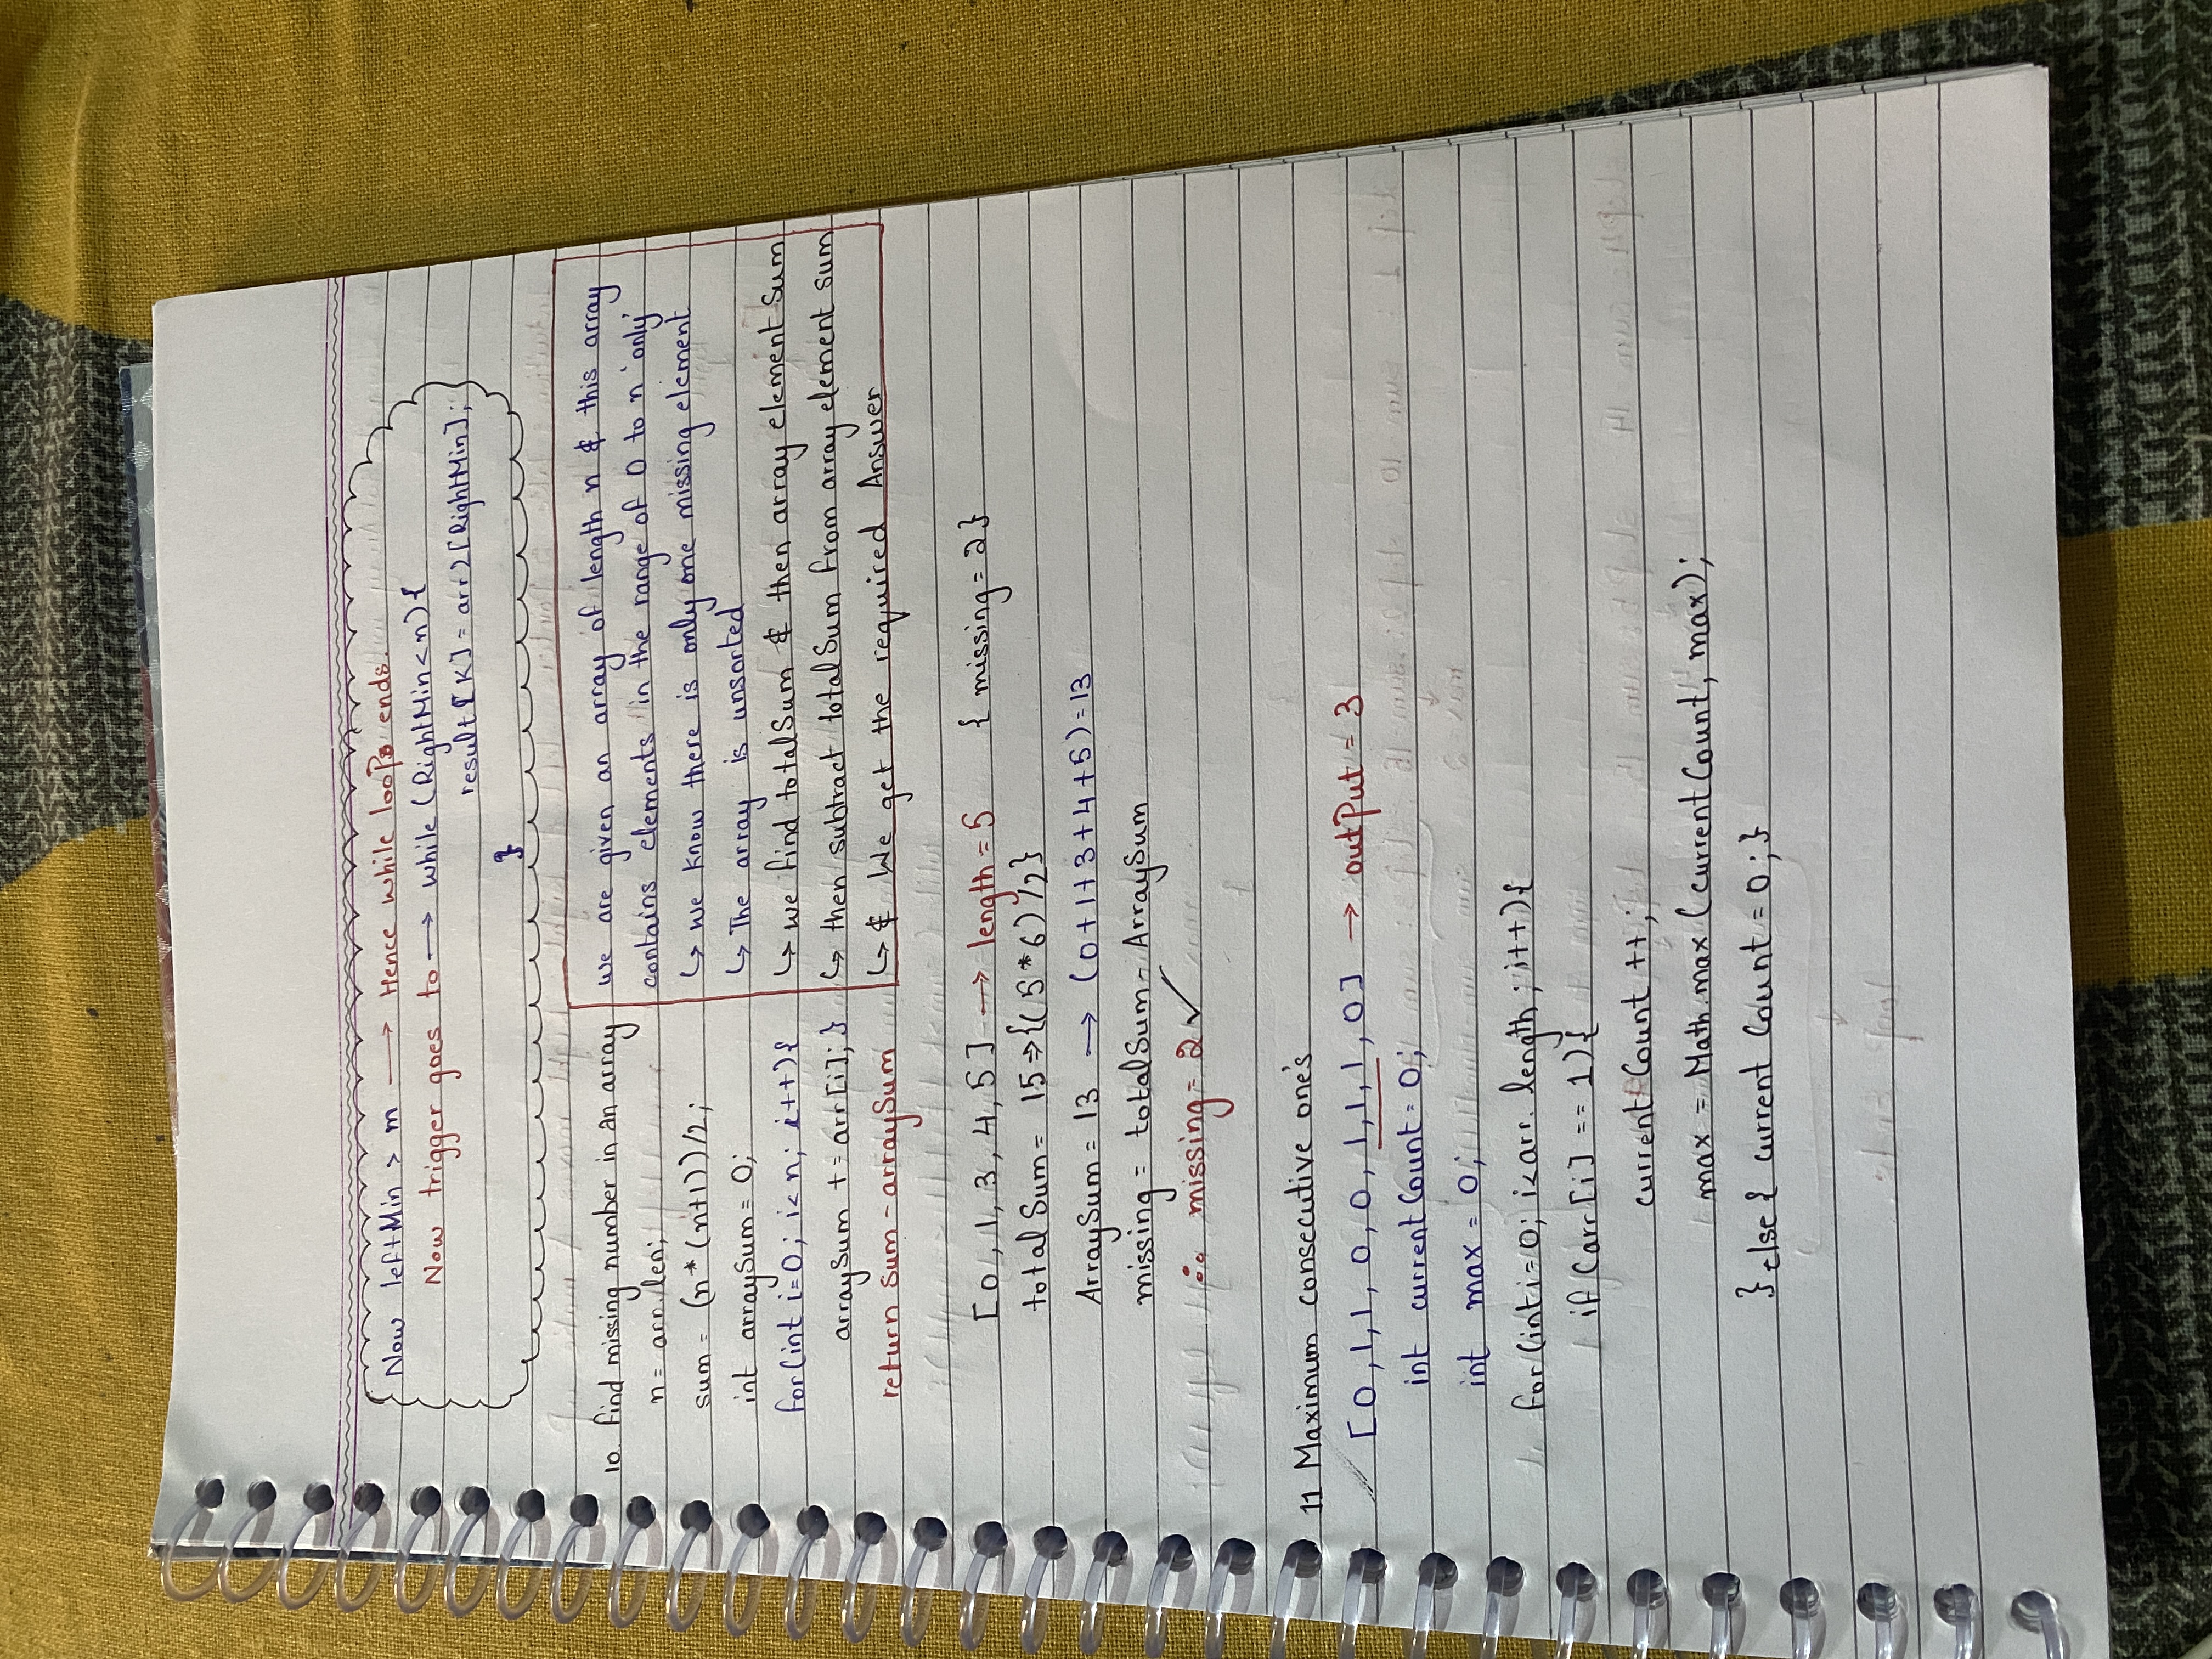 Now leftMin > m → Hence while loops ends.
Now trigger goes to → while (RightMin<n){
result[K] = arr2[RightMin];
}
10. find missing number in an array
n = arr.len;
sum = (n*(n+1))/2;
int arraySum = 0;
for(int i=0; i<n; i++){
arraySum += arr[i]; }
return sum - arraySum
we are given an array of length n & this array
contains elements in the range of 0 to n 'only'
↳ we know there is only one missing element
↳ The array is unsorted
↳ we find totalSum & then array element Sum
↳ then subtract totalSum from array element sum
↳ & We get the required Answer
[0, 1, 3, 4, 5] → length = 5 { missing = 2}
totalSum = 15 ⇒ {(5*6)/2}
ArraySum = 13 → (0+1+3+4+5) = 13
missing = totalSum - ArraySum
∴ missing = 2 ✓
11 Maximum consecutive one's
[0, 1, 1, 0, 0, 1, 1, 1, 0] → output = 3
int currentCount = 0;
int max = 0;
for(int i=0; i<arr.length; i++){
if(arr[i] == 1){
currentCount ++;
max = Math.max(currentCount, max);
} else { currentCount = 0; }